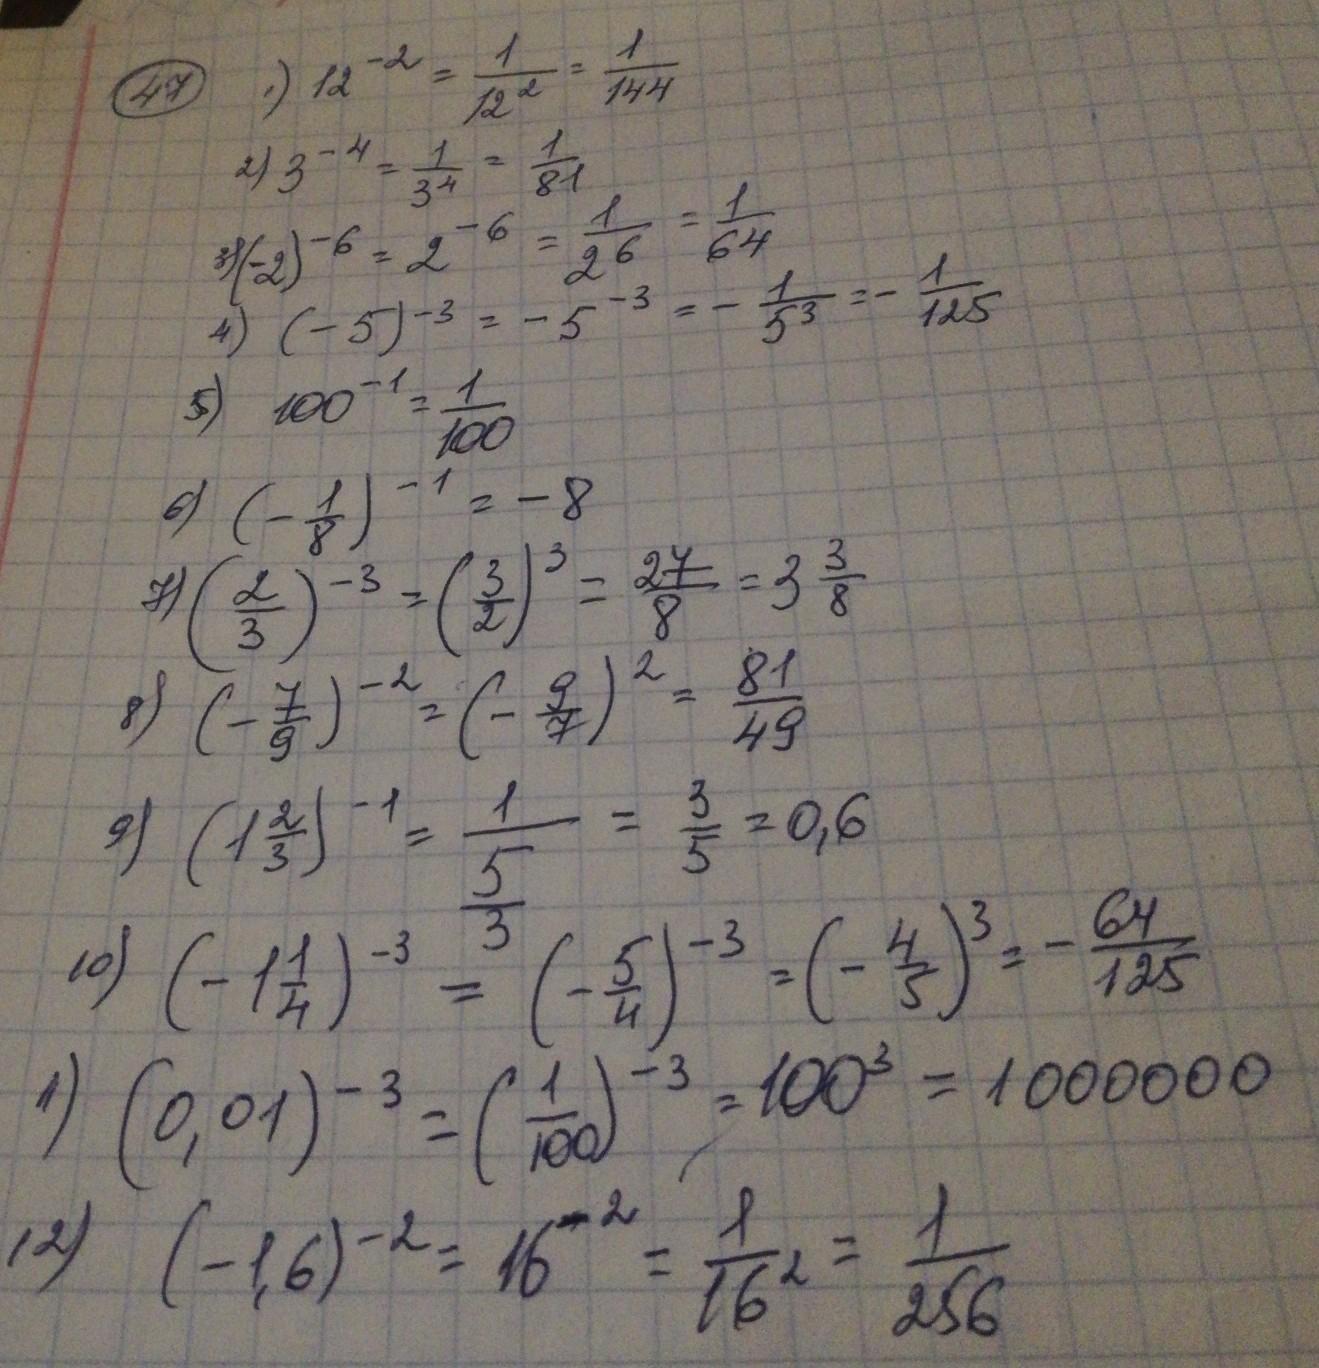 47 1) 12^{-2} = \frac{1}{12^2} = \frac{1}{144}
2) 3^{-4} = \frac{1}{3^4} = \frac{1}{81}
3) (-2)^{-6} = 2^{-6} = \frac{1}{2^6} = \frac{1}{64}
4) (-5)^{-3} = -5^{-3} = -\frac{1}{5^3} = -\frac{1}{125}
5) 100^{-1} = \frac{1}{100}
6) (-\frac{1}{8})^{-1} = -8
7) (\frac{2}{3})^{-3} = (\frac{3}{2})^3 = \frac{27}{8} = 3\frac{3}{8}
8) (-\frac{7}{9})^{-2} = (-\frac{9}{7})^2 = \frac{81}{49}
9) (1\frac{2}{3})^{-1} = \frac{1}{\frac{5}{3}} = \frac{3}{5} = 0,6
10) (-1\frac{1}{4})^{-3} = (-\frac{5}{4})^{-3} = (-\frac{4}{5})^3 = -\frac{64}{125}
1) (0,01)^{-3} = (\frac{1}{100})^{-3} = 100^3 = 1000000
12) (-1,6)^{-2} = 16^{-2} = \frac{1}{16^2} = \frac{1}{256}